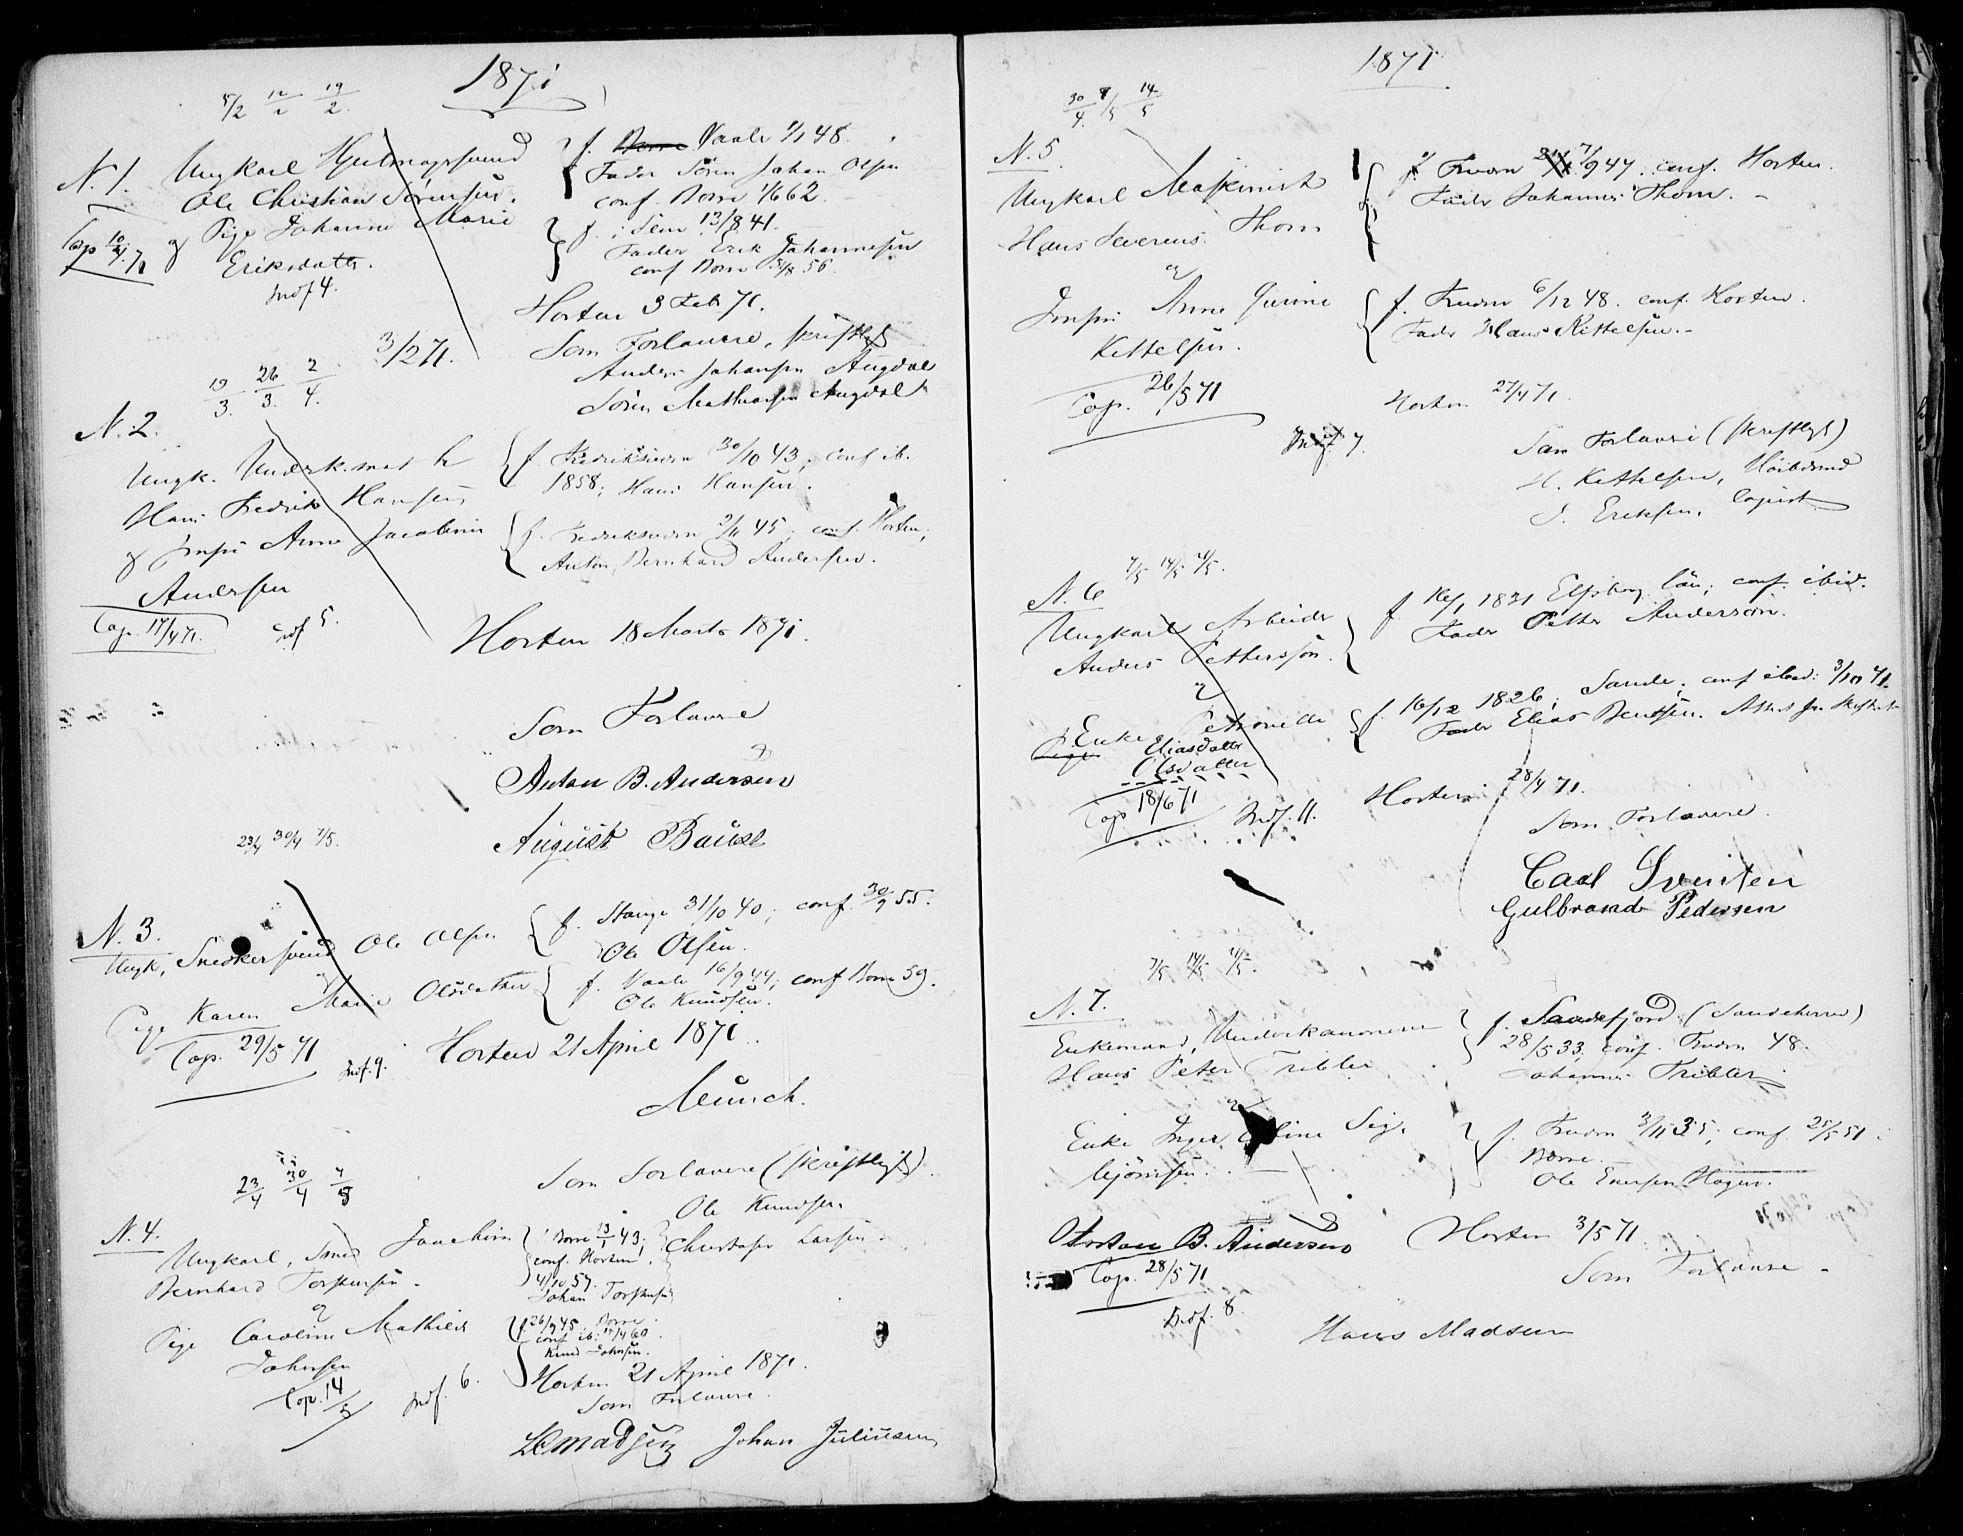 1871
5/2 12/2 19/2.
N. 1. Ungkarl Hjulmagersvend
Ole Christian Sørensen.
Cop 10/4 71 & Pige Johanne Marie
Eriksdatter.
Indf 4.
f. Vaale 1/1 48.
Fader Sören Johan Olsen
conf. Borre 1/6 62
f. i Sem 13/8 41.
Fader Erik Johannesen
conf Borre 56.
Horten 3 Feb 71.
Som Forlovere, skriftligt
Anders Johansen Augdal
Sören Mathiasen Augdal
3/2 71.
19/3. 26/3. 2/4.
N. 2.
Ungk.
Hans Fredrik Hansen
& Jomfru Anne Jacobine
Andersen
Cop. 17/4 71.
Indf 5.
f. Fredriksværn 30/10 43; conf ib.
1858; Hans Hansen.
f. Fredriksværn 45; conf. Horten;
Anton Bernhard Andersen.
Horten 18 Marts 1871.
Som Forlovere
Anton B. Andersen
August Baust
23/4 30/4 7/5.
N. 3.
Ungk, Snedkersvend Ole Olsen
& Pige Karen Marie Olsdatter
Cop. 29/5 71
Indf. 9.
f. Stange 31/10 40; conf. 30/9 55.
Ole Olsen.
f. Vaale 16/9 44; conf Borre 59.
Ole Knudsen.
Horten 21 April 1871.
Münch.
Som Forlovere (skriftligt).
Ole Knudsen.
Christofer Larsen.
23/4 30/4 7/5
N. 4.
Ungkarl, Smed Joachim
Bernhard Torstensen.
&
Pige Caroline Mathilde
Johnsen
Cop. 14/5
Indf. 6.
f Borre 43;
conf. Horten,
4/10 57.
Johan Torstensen
f 26/9 45, Borre
conf ib: 60.
Knud Johnsen.
Horten 21 April 1871.
Som Forlovere.
Madsen Johan Juliusen
1871
30/4. 7/5 14/5
N. 5.
Ungkarl Maskinist
Hans Severens Thorn
&
Jomfru Anne Gurine
Kettelsen.
Cop. 26/5 71
Indf 7.
f. Fredrv 7/9 47. conf. Horten.
Fader Johannes Thorn.
f. Fredrv 6/12 48. conf. Horten.
Fader Hans Kittelsen.
Horten 27/4 71.
Som Forlovere (skriftligt)
H. Kettelsen, Höibdsmd
J. Eriksen, Copiist
7/5 14/5 21/5.
N. 6
Ungkarl Arbeider
Anders Pettersson.
&
Enke Petronelle
Pige Eliasdatter
Olsdatter
Cop 18/6 71
Indf. 11.
f 16/1 1831 Elfsborg län; conf. ibid.
Fader Petter Anderson.
f. 16/12 1826; Sande; conf ibid: 3/10 41.
Fader Elias Bentsen.
Horten 28/4 71.
Som Forlovere.
Carl Svensen
Gulbrand Pedersen
7/5 14/5 21/5.
N. 7.
Enkemand, Underkanonerer
Hans Peter Tribler
&
Enke Inger Sig.
Bjørnsen.
f. Sandefjord (Sandeherred)
28/5 33, conf. Fredrv 48.
Johannes Tribler
f. Fredrv 3/11 35; conf. 25/5 51
Borre.
Ole Enersen Hagen.
Anton B. Andersen
Cop. 28/5 71
Indf. 8.
Horten 3/5 71
Som Forlovere
Hans Madsen